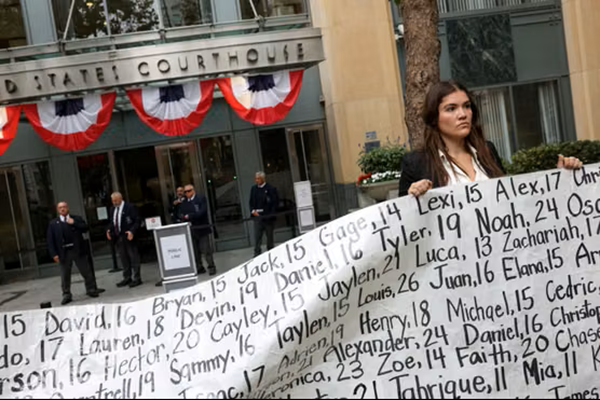 D STATES COURTHOUSE
15 David, 16 Bryan, 15 Jack, 15 Gage, 14 Lexi, 15 Alex, 17 Chri
do, 17 Lauren, 18 Devin, 19 Daniel, 16 Tyler, 19 Noah, 24 Osc
erson, 16 Hector, 20 Cayley, 15 Jaylen, 21 Luca, 13 Zachariah, 17
19 Sammy, 16 Taylen, 15 Louis, 26 Juan, 16 Elana, 15 Ar
17 Adrien, 19 Henry, 18 Michael, 15 Cedric,
21 Alexander, 24 Daniel, 16 Christop
23 Zoe, 14 Faith, 20 Chase
21 Tabrique, 11 Mia, 11 K
James